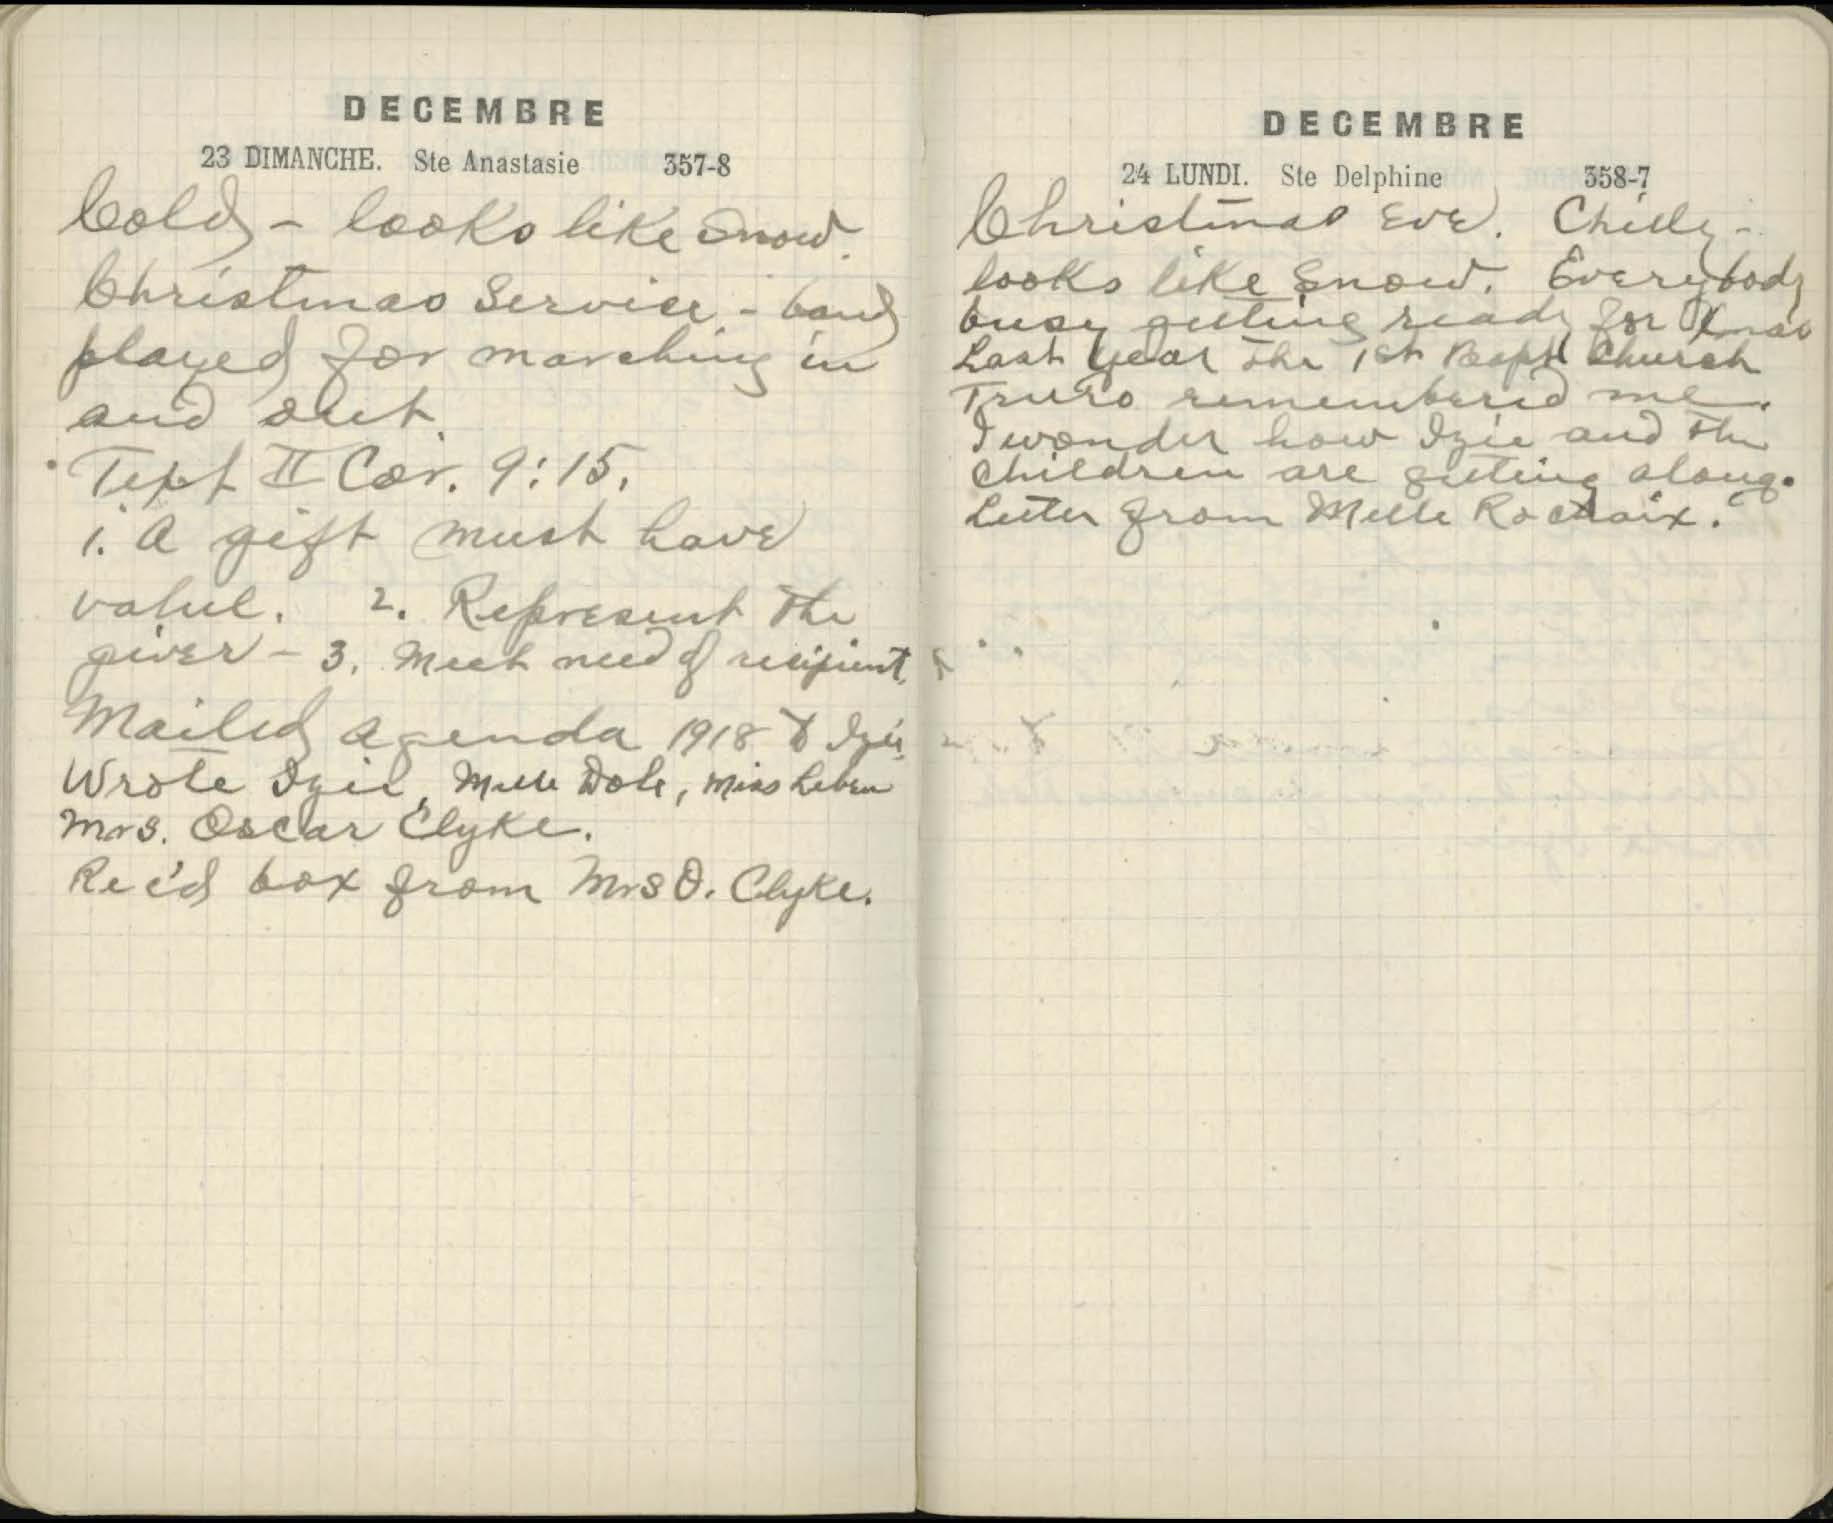 DECEMBRE
23 DIMANCHE. Ste Anastasie 357-8
Cold - looks like snow.
Christmas Service - band
played for marching in
and out.
Text II Cor. 9:15.
1. A gift must have
value. 2. Represent the
giver - 3. Meet need of recipient.
Mailed agenda 1918 to Izie.
Wrote Izie, Melle Dole, Miss
Mrs. Oscar Clyke.
Rec'd box from Mrs O. Clyke.
DECEMBRE
24 LUNDI. Ste Delphine 358-7
Christmas Eve. Chilly -
looks like snow. Everybody
busy getting ready for Xmas
Last year the 1st Bapt Church
Truro remembered me.
I wonder how Izie and the
children are getting along.
Letter from Melle Rochaix.